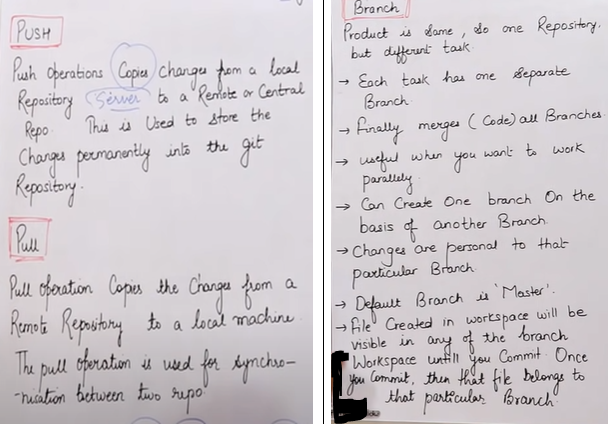 PUSH
Push operations Copies changes from a local
Repository Server to a Remote or Central
Repo. This is Used to store the
Changes permanently into the git
Repository.
Pull
Pull operation Copies the Changes from a
Remote Repository to a local machine.
The pull operation is used for synchro-
-nication between two repo.
Branch
Product is same, so one Repository.
but different task.
→ Each task has one separate
Branch.
→ Finally merges (Code) all Branches.
→ useful when you want to work
parallely.
→ Can Create One branch On the
basis of another Branch.
→ Changes are personal to that
particular Branch.
→ Default Branch is 'Master'.
→ File Created in workspace will be
visible in any of the branch
Workspace untill you Commit. Once
you Commit, then that file belongs to
that particular Branch.